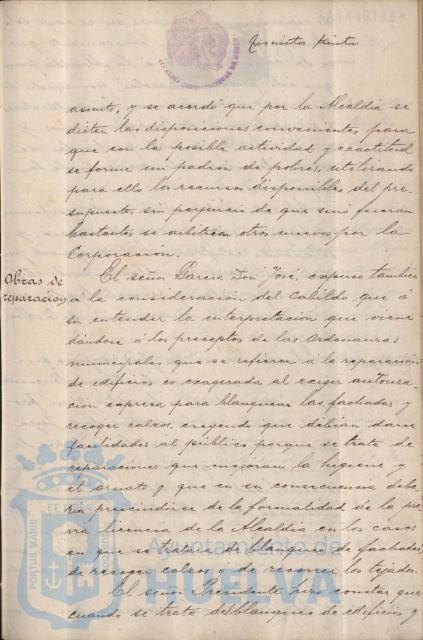 asunto, y se acordó que por la Alcaldía se
dicten las disposiciones convenientes para
que con la posible actividad y exactitud
se forme un padrón de pobres, utilizando
para ello los recursos disponibles del pre-
supuesto, sin perjuicio de que si no fueran
bastantes se arbitren otros nuevos por la
Corporación.
Obras de
reparación
El señor García Don José, expuso también
a la consideración del Cabildo que á
su entender la interpretación que viene
dándose á los preceptos de las Ordenanzas
municipales que se refieren á la reparación
de edificios es exagerada al exigir autori
cion expresa para blanquear las fachadas y
recoger calzos, creyendo que debían darse
facilidades al público porque se trata de
reparaciones que mejoran la higiene y
el ornato y que en su consecuencia debe
ría prescindirse de la formalidad de la pre
via licencia de la Alcaldía en los casos
en que se tratara de blanqueo de fachadas,
de recoger calzos o de recorrer los tejados.
El señor Presidente hizo constar que
cuando se trata de blanqueo de edificios y
PORTUS MARIS
ET
Ayuntamiento de
HUELVA